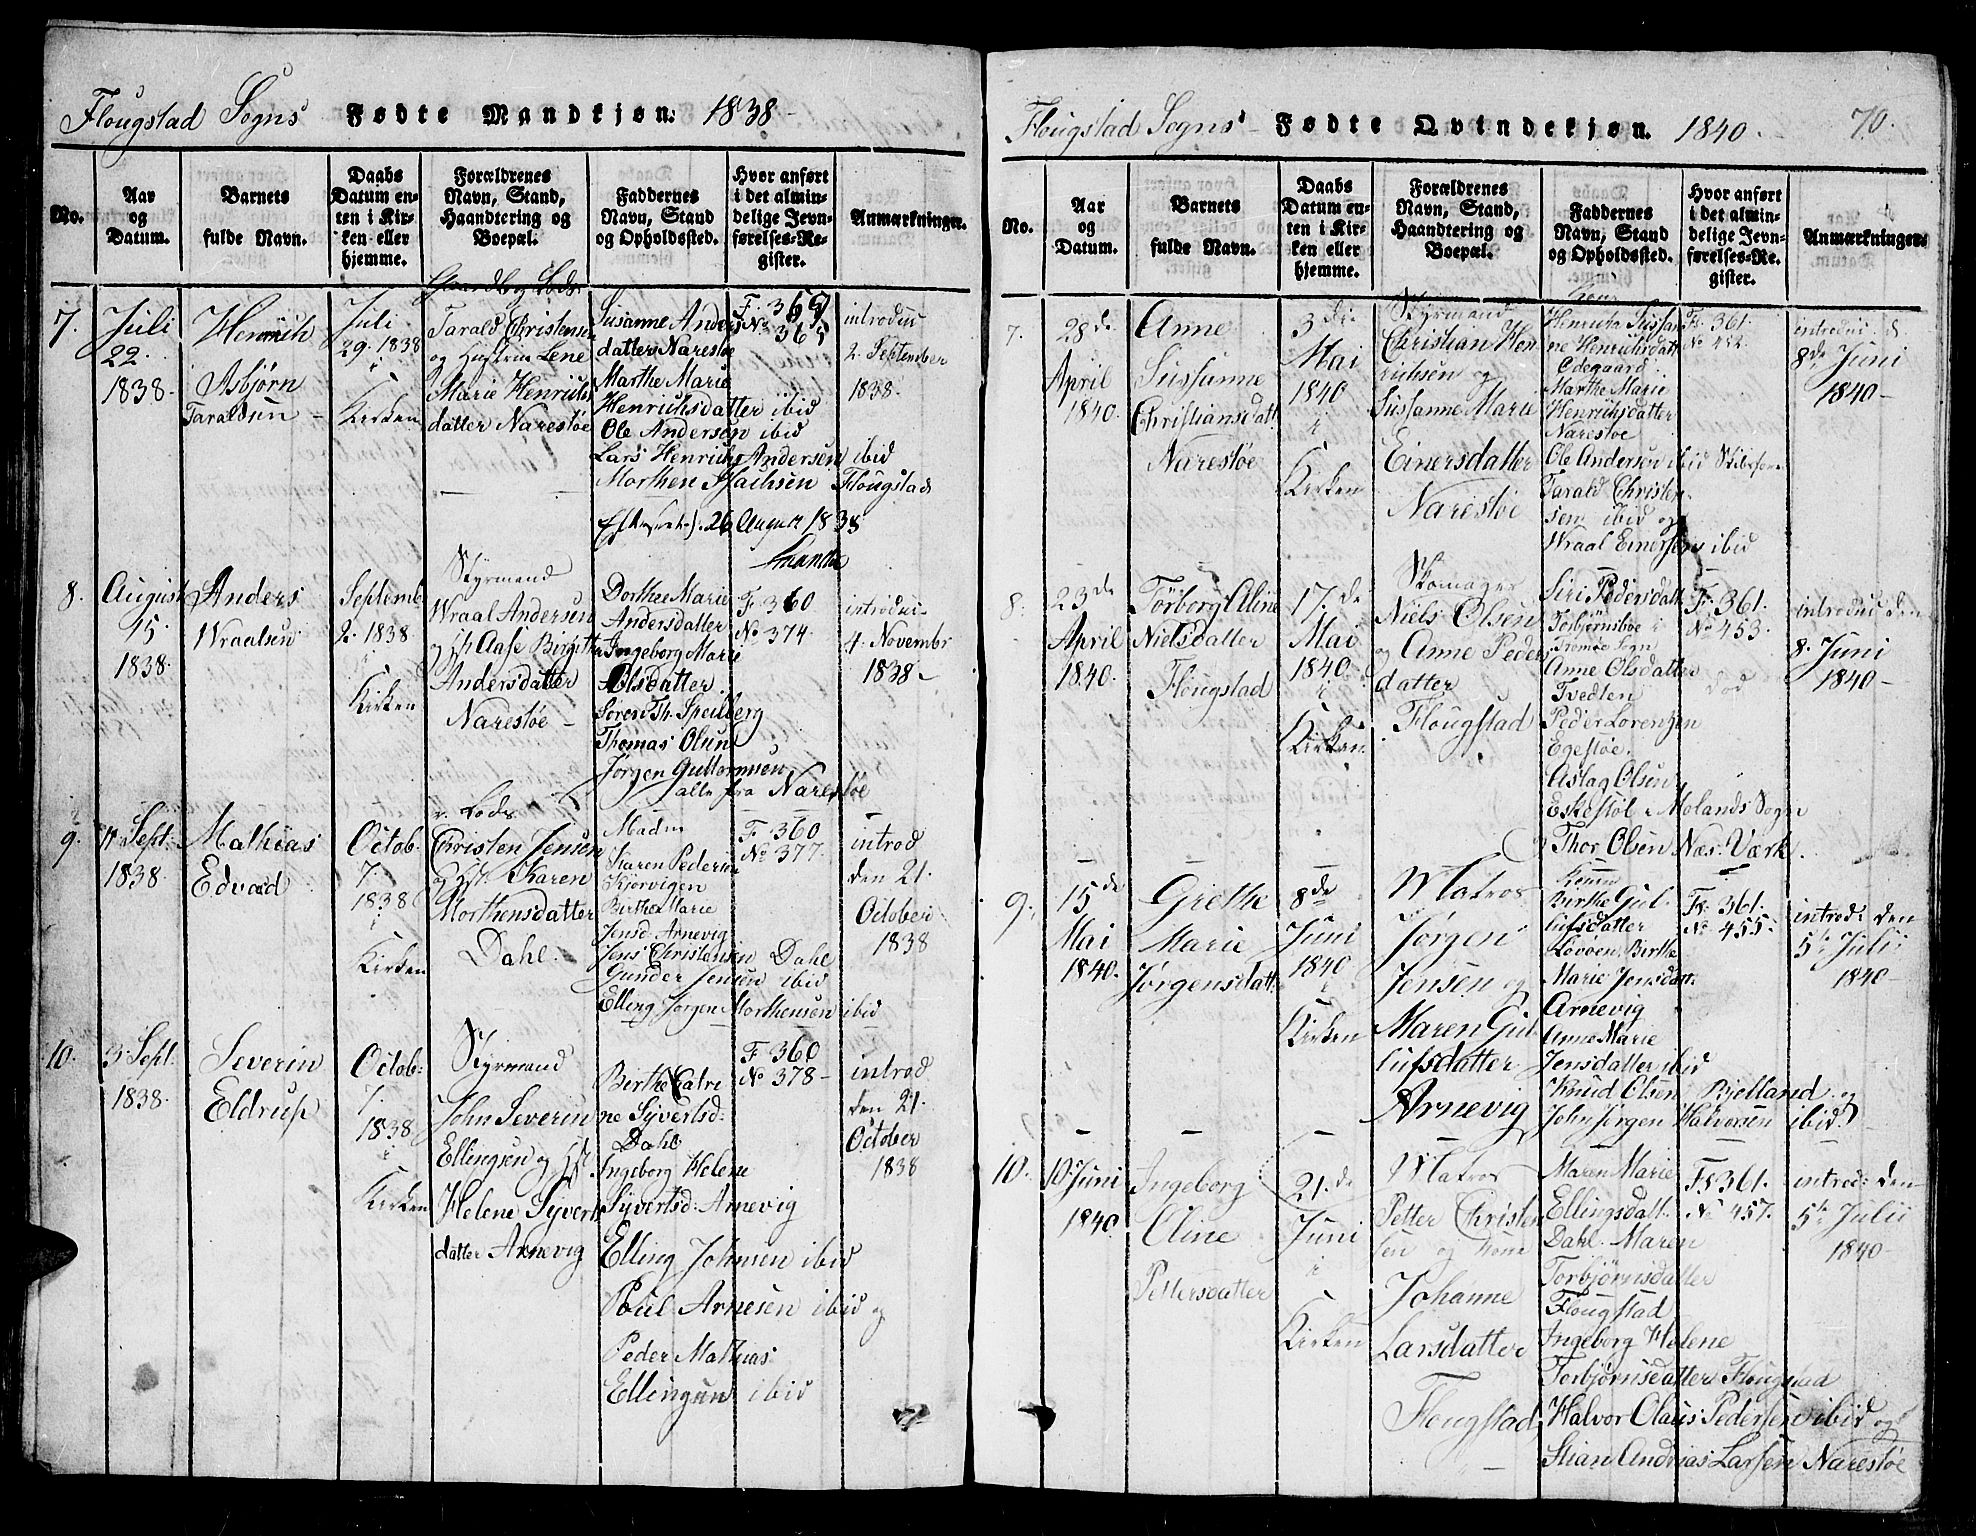 Flougstad Sogns Fødte Mandkjøn. 1838-
No.
Aar og Datum.
Barnets fulde Navn.
Daabs Datum enten i Kirken eller hjemme.
Forældrenes Navn, Stand, Haandtering og Boepæl.
Faddernes Navn, Stand og Opholdssted.
Hvor anført i det almindelige Jevnførelses-Register.
Anmærkninger.
7.
Juli
22.
1838-
Henrich
Asbjørn
Taraldsen -
Juli
29. 1838
i
Kirken
Gaardb og Lods
Tarald Christensen
og Hustrue Lene
Marie Henrichs
datter Narestøe
Susanne Anders
datter Narestøe
Marthe Marie
Henrichsdatter ibid
Ole Andersen ibid
Lars Henrich Andersen ibid
Morthen Isachsen Flougstad
26 August 1838
F. 359
No 365
introdus
2. September
1838.
8.
August
15.
1838.
Anders
Wraalsen
Septemb
2. 1838
i
Kirken
Styrmand
Wraal Andersen
og H Aase Birgithe
Andersdatter
Narestøe -
Dorthea Marie
Andersdatter
Ingeborg Marie
Olsdatter
Søren Th. Speilberg
Thomas Olsen
Jørgen Guttormsen
alle fra Narestøe
F. 360
No 374.
introdus
4. Novembr
1838-
9.
4 Sept.
1838.
Mathias
Edvard
Octob.
7.
1838
i
Kirken
Lods
Christen Jensen
og Hst. Karen
Morthensdatter
Dahl.
Madm
Karen Pedersen
Kjørvigen
Birthe Marie
Jensd. Arnevig
Jens Christensen Dahl
Gunder Jensen ibid
Elling Jørgen Morthensen ibid
F. 360
No 377.
introd
den 21.
October
1838
10.
3 Sept.
1838.
Severin
Eldrup
Octob:
7.
1838
i
Kirken
Styrmand
John Severin
Ellingsen og Hst.
Helene Syverts
datter Arnevig
Birthe Catri
ne Syvertsd:
Dahl
Ingeborg Helene
Syvertsd: Arnevig
Elling Johnsen ibid
Poul Arnesen ibid og
Peder Mathias
Ellingsen ibid
F. 360
No 378-
introd
den 21.
October
1838
Flougstad Sogns Fødte Qvindekjøn. 1840. 70.
No.
Aar og Datum.
Barnets fulde Navn.
Daabs Datum enten i Kirken eller hjemme.
Forældrenes Navn, Stand, Haandtering og Boepæl.
Faddernes Navn, Stand og Opholdssted.
Hvor anført i det almindelige Jevnførelses-Register.
Anmærkninger.
7.
28de
April
1840.
Anne
Sussanne
Christiansdatt.
Narestøe
3die
Mai
1840
i
Kirken
Styrmand
Christian Hen
richsen og
Sussanne Marie
Einersdatter
Narestøe
Kone
Henricha Sussan
ne Henrichsdatt
Odegaard
Marthe Marie
Henrichsdatter
Narestøe
Ole Andersen ibid
Tarald Christen
sen ibid og
Wraal Einersen ibid
Fs. 361.
No 452.
introdus. d.
8de Juni
1840-
8.
23de
April
1840.
Torborg Oline
Nielsdatter
Flougstad
17.de
Mai
1840
i
Kirken
Skomager
Niels Olsen
og Anne Peders
datter
Flougstad
Siri Pedersdatt.
Torbjørnsboe i
Tromøe Sogn
Anne Olsdatter
Tvedten
Peder Lorenzen
Egestøe.
Aslag Olsen
Eskestøl i Molands Sogn
og Thor Olsen Næs Værk.
Fs. 361.
No 453.
død
introdus den
8. Juni
1840-
9.
15de
Mai
1840.
Grethe
Marie
Jørgensdatt.
8de
Juni
1840
i
Kirken
Matros
Jørgen
Jensen og
Maren Gul
lufsdatter
Arnevig
Konen
Birthe Gul
lufsdatter
Lovøen, Birthe
Marie Jensdatt.
Arnevig
Anne Marie
Jensdatter ibid
Knud Olsen Bjelland og
John Jørgen Halvorsen ibid.
Fs. 361.
No 455.
introd: den
5te Julii
1840-
10.
10. Juni
1840
Ingeborg
Oline
Pettersdatter
21.de
Juni
i
Kirken
Matros
Petter Christen
sen og Kone
Johanne
Larsdatter
Flougstad
Maren Marie
Ellingsdatt.
Dahl. Maren
Torbjørnsdatter
Flougstad
Ingeborg Helene
Torbjørnsdatter Flougstad
Halvor Claus Pedersen ibid og
Stian Andreas Larsen Narestøe
Fs 361.
No 457.
introd: den
5te Julii
1840-